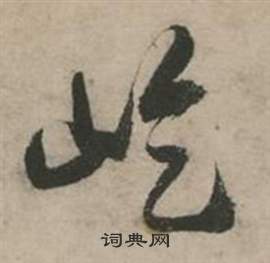 屹
词典网